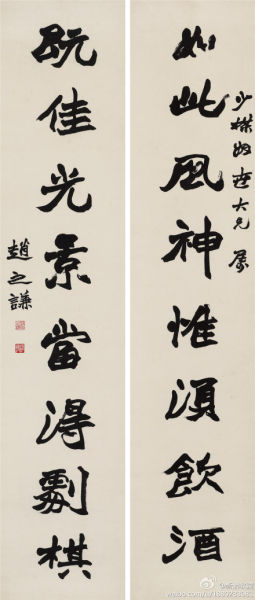 如此風神惟湏飲酒
少楳世大兄屬
既佳光景當淂劇棋
趙之謙